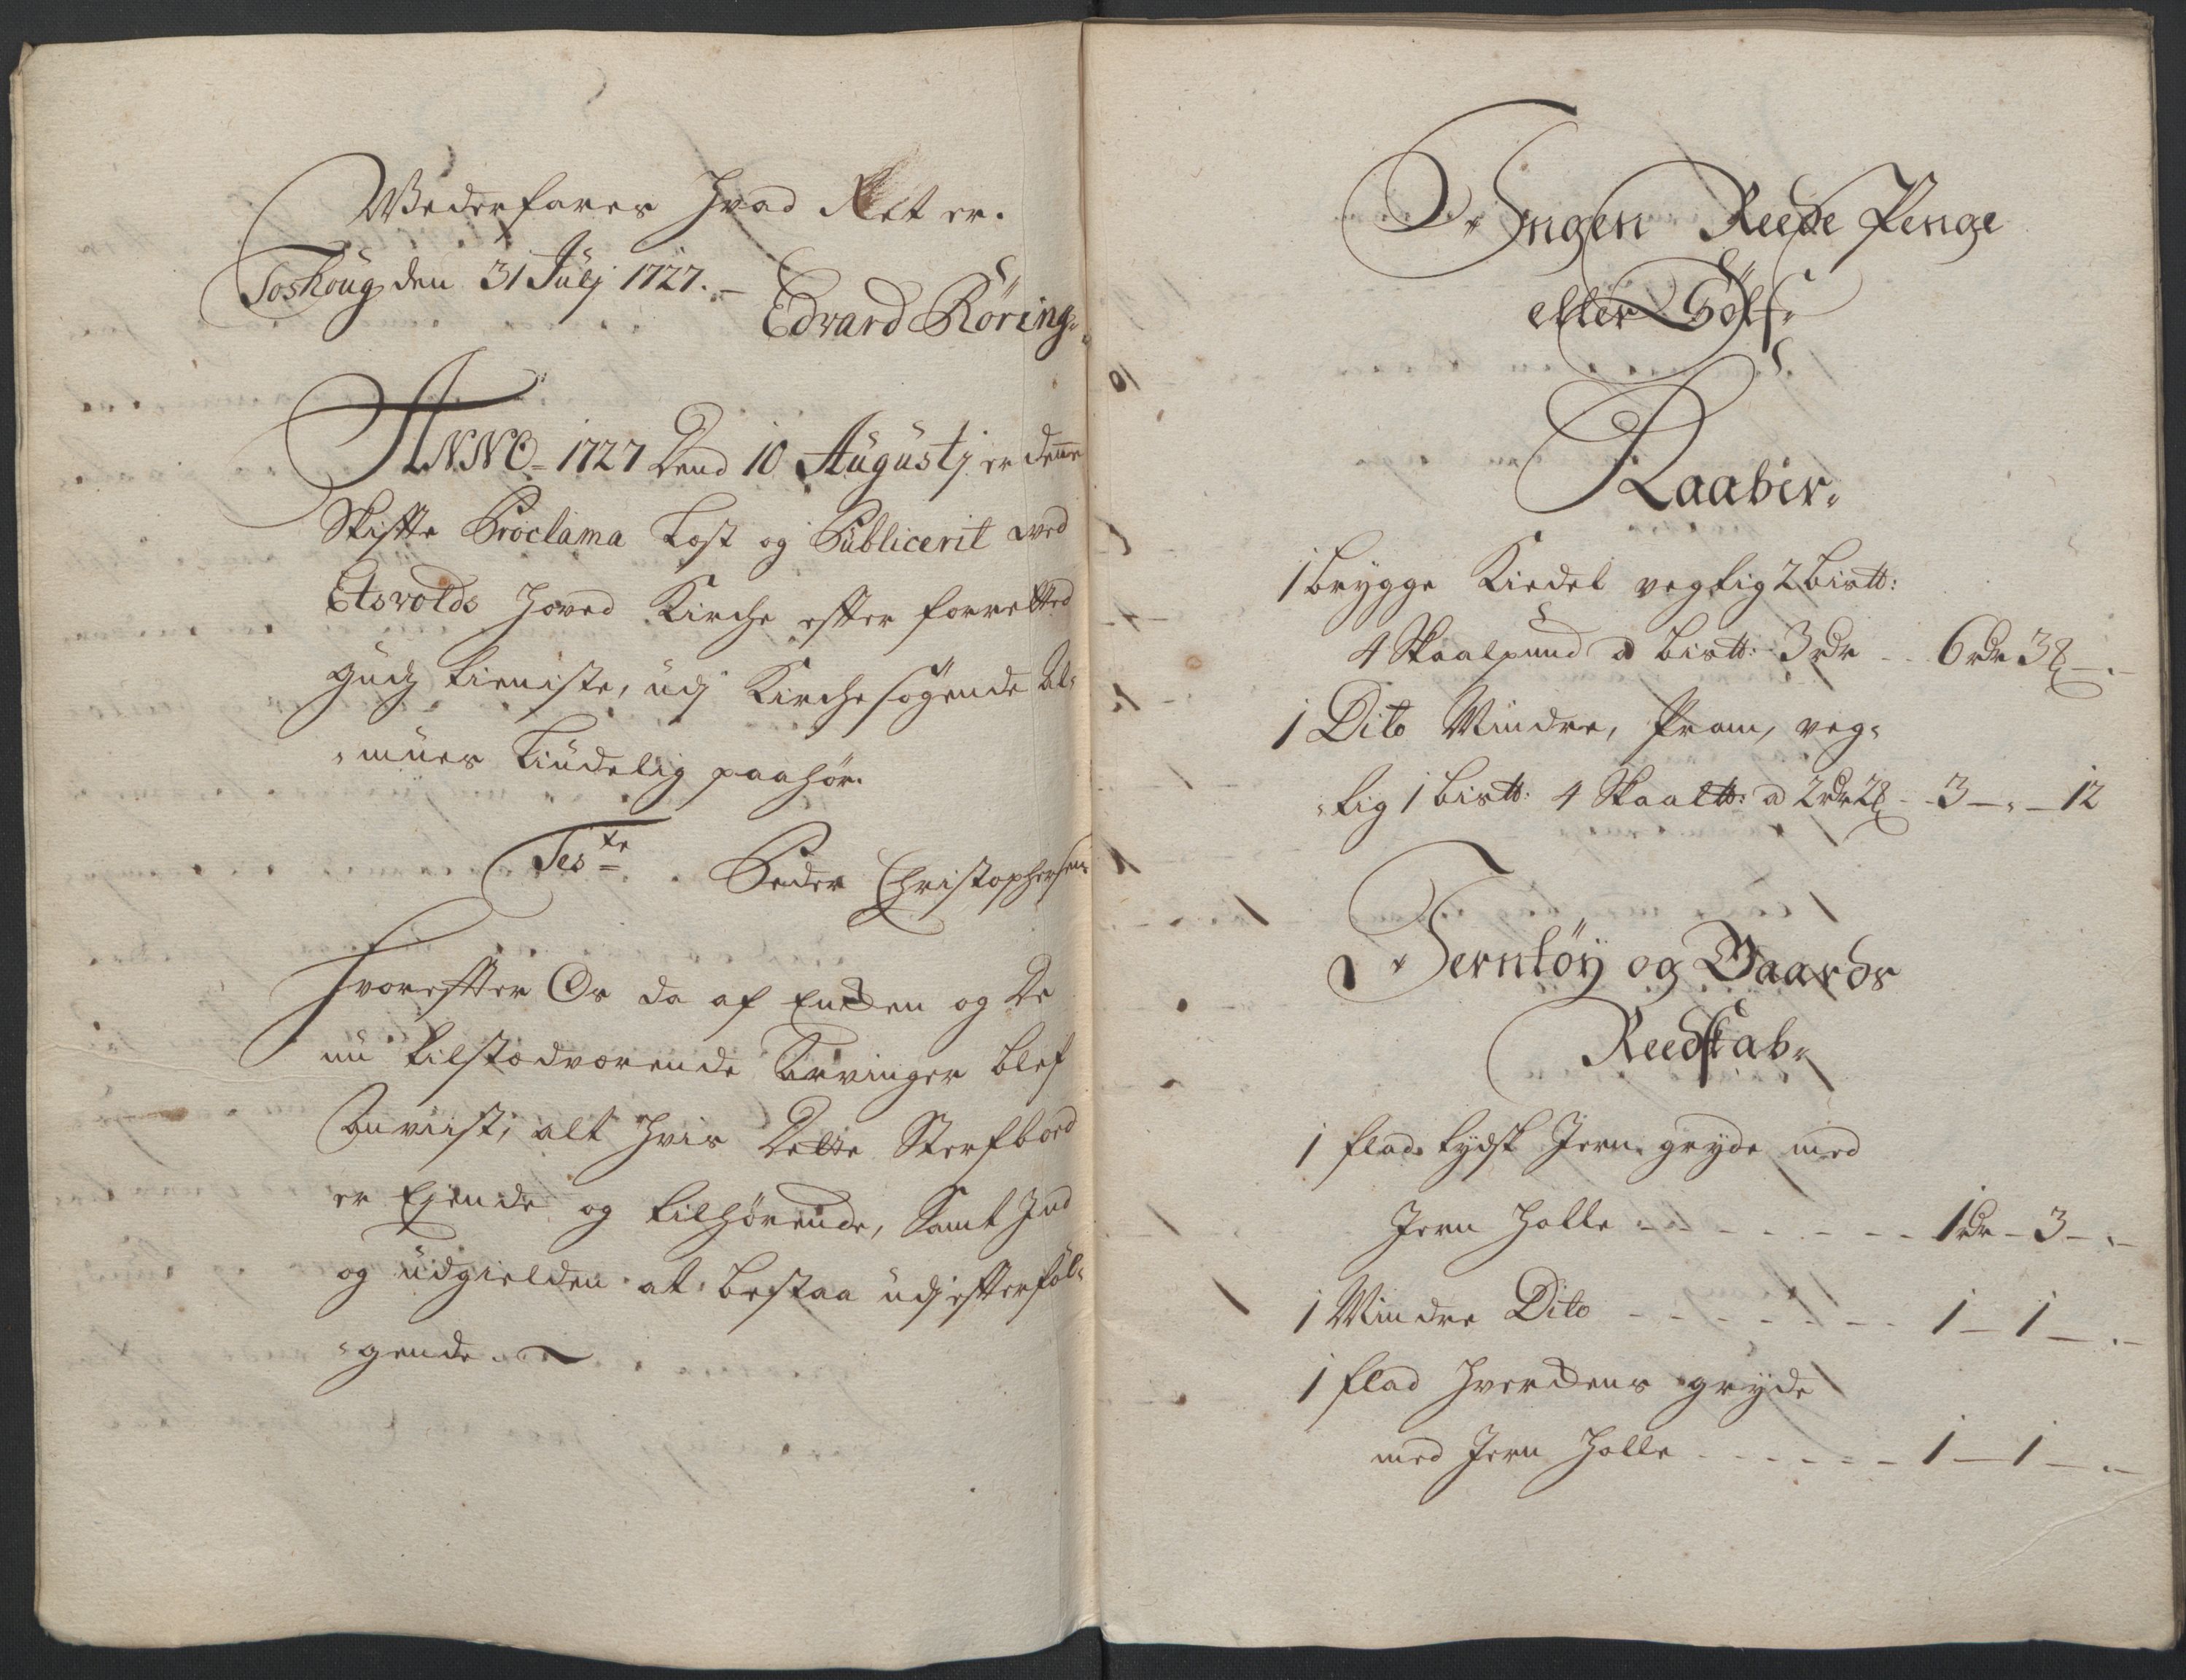 Wederfares hvad Ret er.
Toskoug den 31 Julj 1727. –
Edvard Röring.
ANNO 1727 Dend 10 Augustj er denne
Skiftte Proclama Læst og Publicerit ved
Edsvolds Hoved Kirche efter forretted
Guds tieniste, udj Kirchesøgende Al-
-mues Liudelig paahør.
Teste
Peder Christophersen
Hvorefter Os da af Encken og De
nu tilstædværende Arvinger blef
Anviist, alt hvis Dette Sterfboed
er Eyende og tilhørende, Samt Ind
og udgielden at bestaa udj efterføl-
-gende.
Ingen Reede Penge
eller Sölf.
Kaaber.
1 brygge Kiedel vegtig 2 bis℔:
4 Skaalpund a bis℔: 3 rdr - 6 rdr 3 ß - . -
1 Dito Mindre, veg-
-tig 1 bis℔: 4 Skaal℔: a 2 rdr 2 ß - 3 - . - 12
Jerntöy og Gaards
Reedskab.
1 flad tydsk Jern gryde med
Jern Holle - - - - - 1 rdr - 3 - . -
1 Mindre Dito - - - - - 1 - 1 - . -
1 flad Hverdens gryde
med Jern Holle - - - - - 1 - 1 - . -